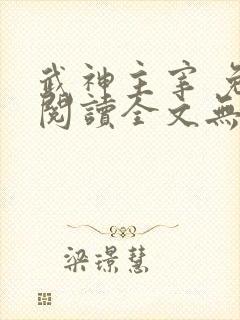 武神主宰 免
閱讀全文無
梁璟慧